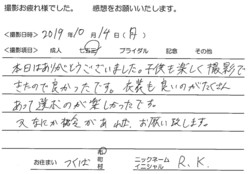 撮影お疲れ様でした。 感想をお願いいたします。
撮影日時 2019年 10月 14日 (月)
撮影項目 成人 七五三 ブライダル 記念 その他
本日はありがとうございました。子供も楽しく撮影で
きたので良かったです。衣装も良いのがたくさん
あって選ぶのが楽しかったです。
又なにか機会があれば、お願い致します。
お住まい つくば 市 町 村 ニックネーム イニシャル R.K.